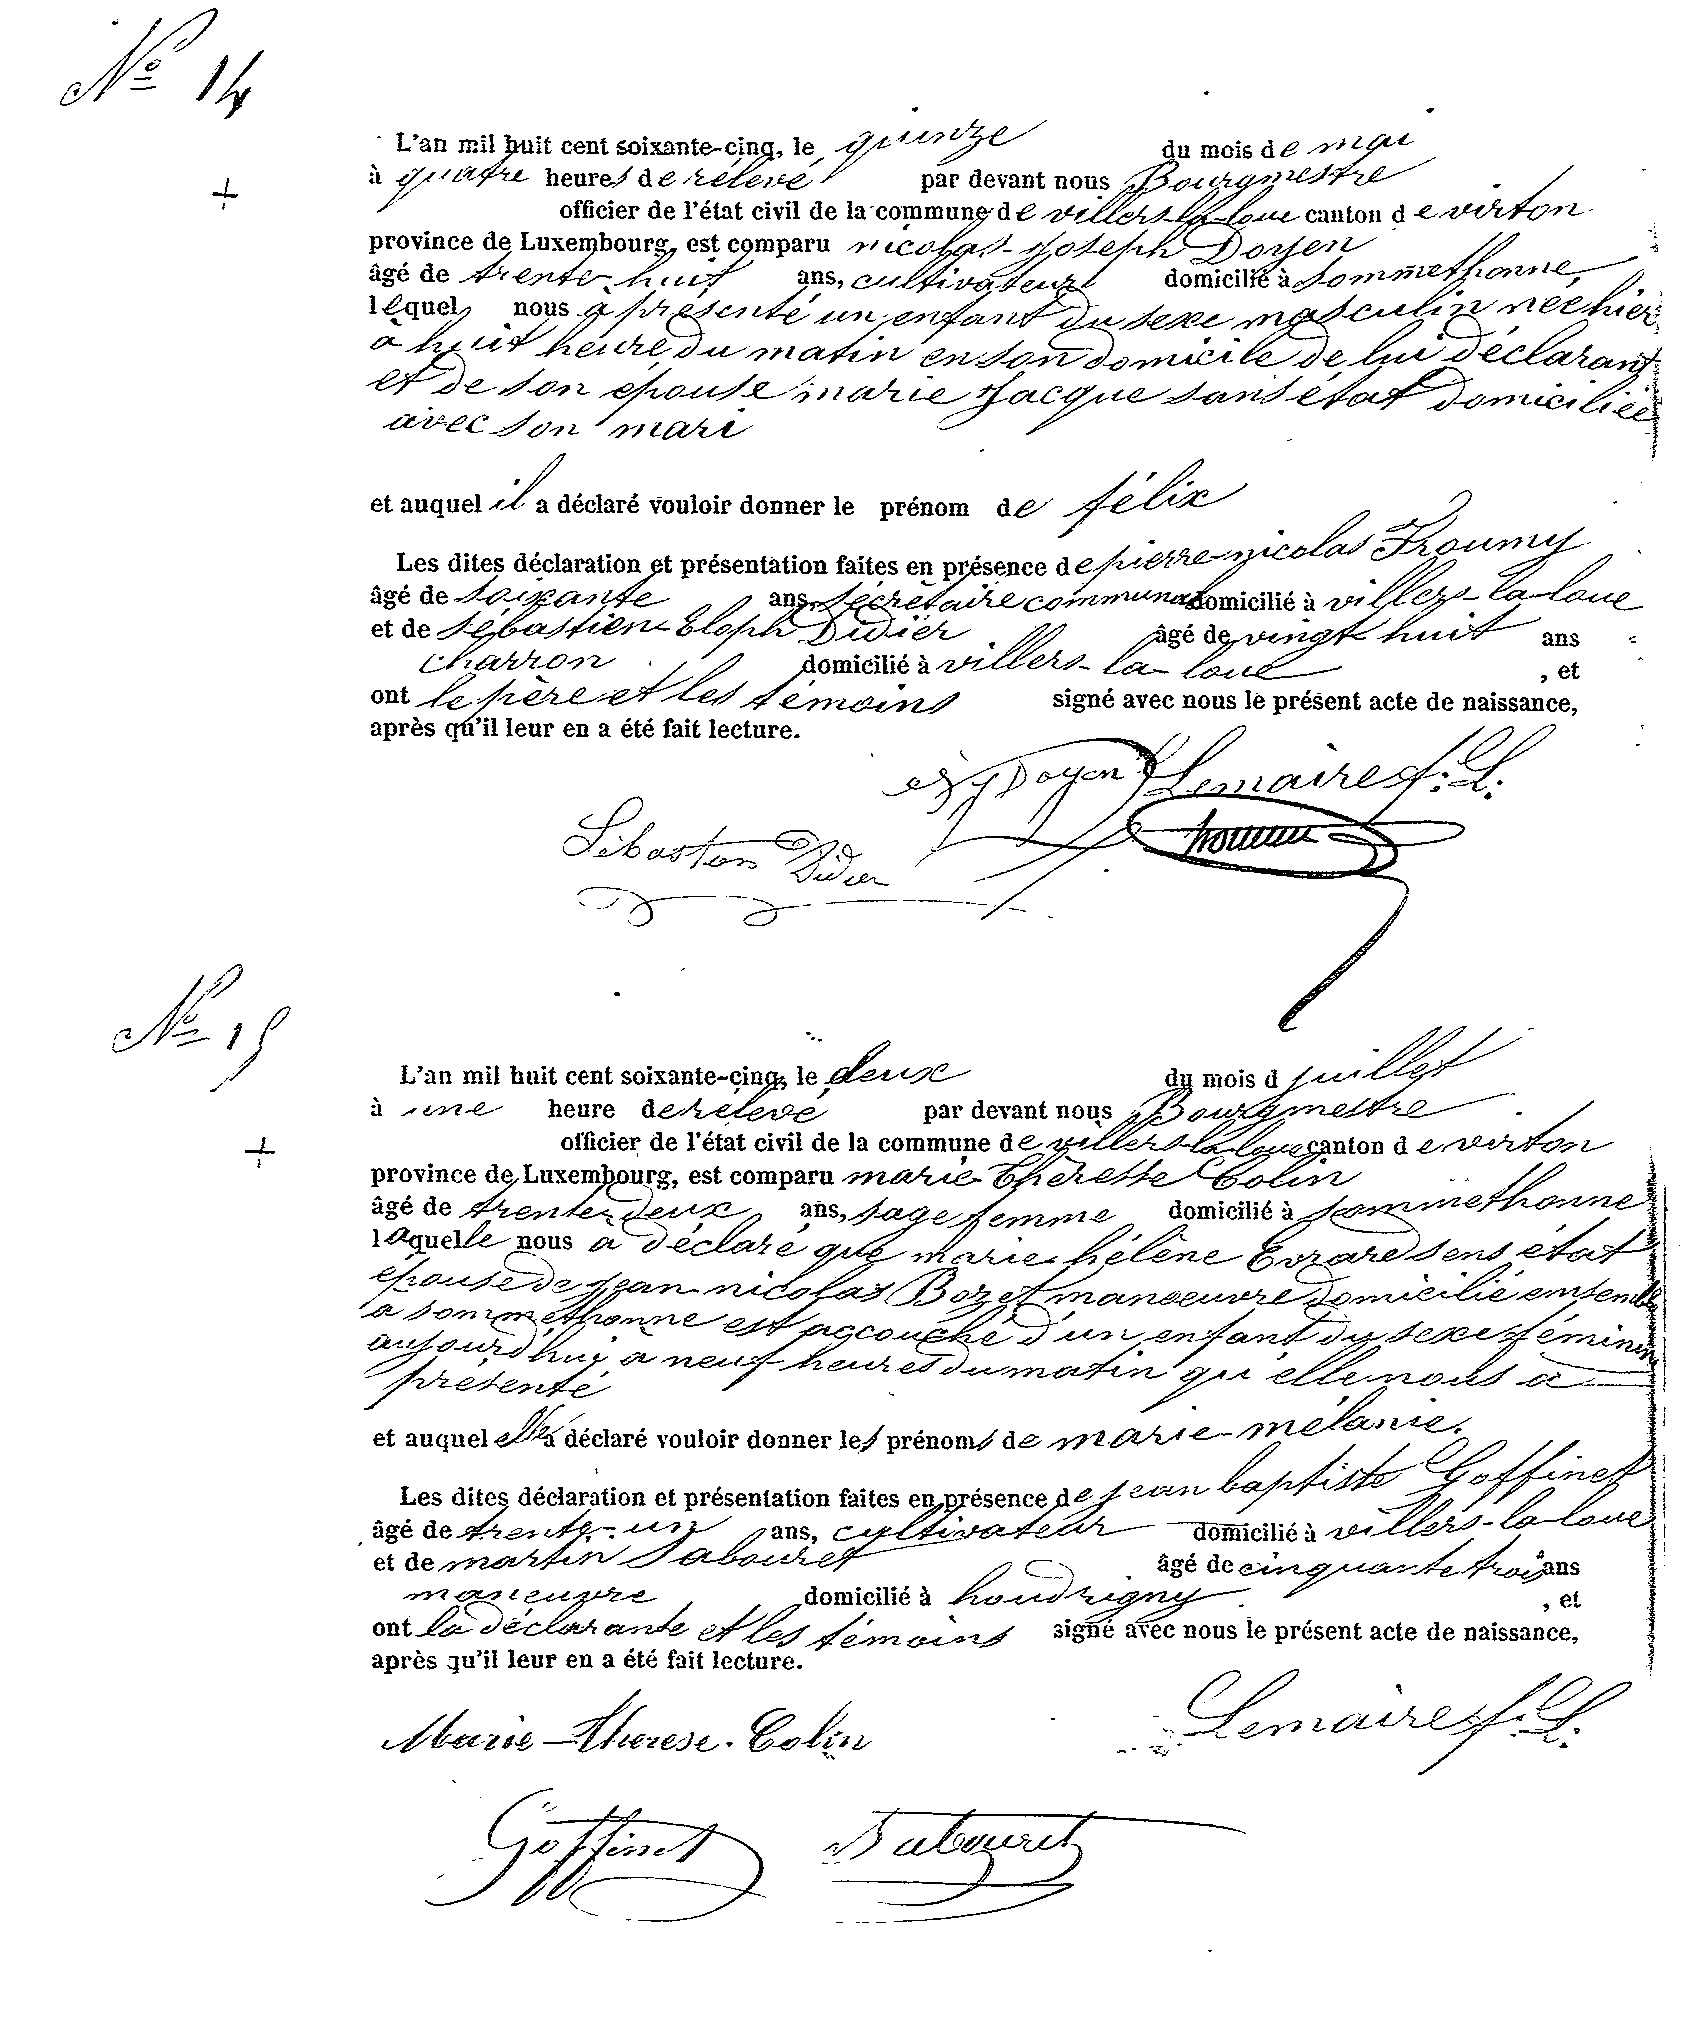 Nº 14
L'an mil huit cent soixante-cinq, le quinze du mois de mai
à quatre heures de rélevé par devant nous Bourgmestre
officier de l'état civil de la commune de villers-la-loue canton de virton
province de Luxembourg, est comparu nicolas-joseph Doyen
âgé de trente-huit ans, cultivateur domicilié à sommethonne,
lequel nous a présenté un enfant du sexe masculin né hier
à huit heure du matin en son domicile de lui déclarant
et de son épouse marie Jacque sans état domiciliée
avec son mari
et auquel il a déclaré vouloir donner le prénom de félix
Les dites déclaration et présentation faites en présence de pierre-nicolas
âgé de soixante ans, sécrétaire communal domicilié à villers-la-loue
et de Sébastien Eloph Didier âgé de vingt huit ans
charron domicilié à villers-la-loue , et
ont le père et les témoins signé avec nous le présent acte de naissance,
après qu'il leur en a été fait lecture.
Doyen Lemaire f. L.
Sébastien Didier
Nº 15
L'an mil huit cent soixante-cinq, le deux du mois d juillet
à une heure de rélevé par devant nous Bourgmestre
officier de l'état civil de la commune de villers-la-loue canton de virton
province de Luxembourg, est comparu marie-Thèresse Colin
âgé de trente-deux ans, sage femme domicilié à sommethonne
laquelle nous a déclaré que marie hélène Evrard sens état
épouse de jean-nicolas Bozet manœuvre domicilié ensemble
a sommethonne est accouché d'un enfant du sexe féminin
aujourd'hui a neuf heures du matin qu'elle nous a
présenté
et auquel elle a déclaré vouloir donner les prénoms de marie-mélanie.
Les dites déclaration et présentation faites en présence de jean baptiste Goffinet
âgé de trente-un ans, cultivateur domicilié à villers-la-loue
et de martin Sabouret âgé de cinquante trois ans
manœuvre domicilié à houdrigny , et
ont la déclarante et les témoins signé avec nous le présent acte de naissance,
après qu'il leur en a été fait lecture.
Marie-Therese. Colin Lemaire f. L.
Goffinet Sabouret